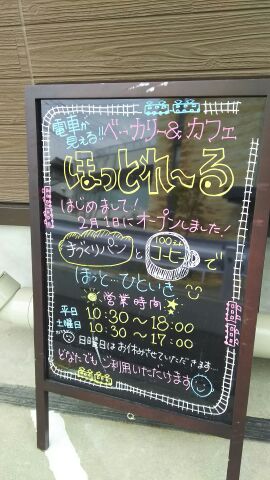 電車が
見える!! ベーカリー&カフェ
ほっとれ〜る
はじめまして!
2月1日にオープンしました!
手づくりパンと 100えん コーヒーで
ほっと…ひといき
営業時間
平日 10:30〜18:00
土曜日 10:30〜17:00
日曜日はお休みさせていただきます…
どなたでもご利用いただけます